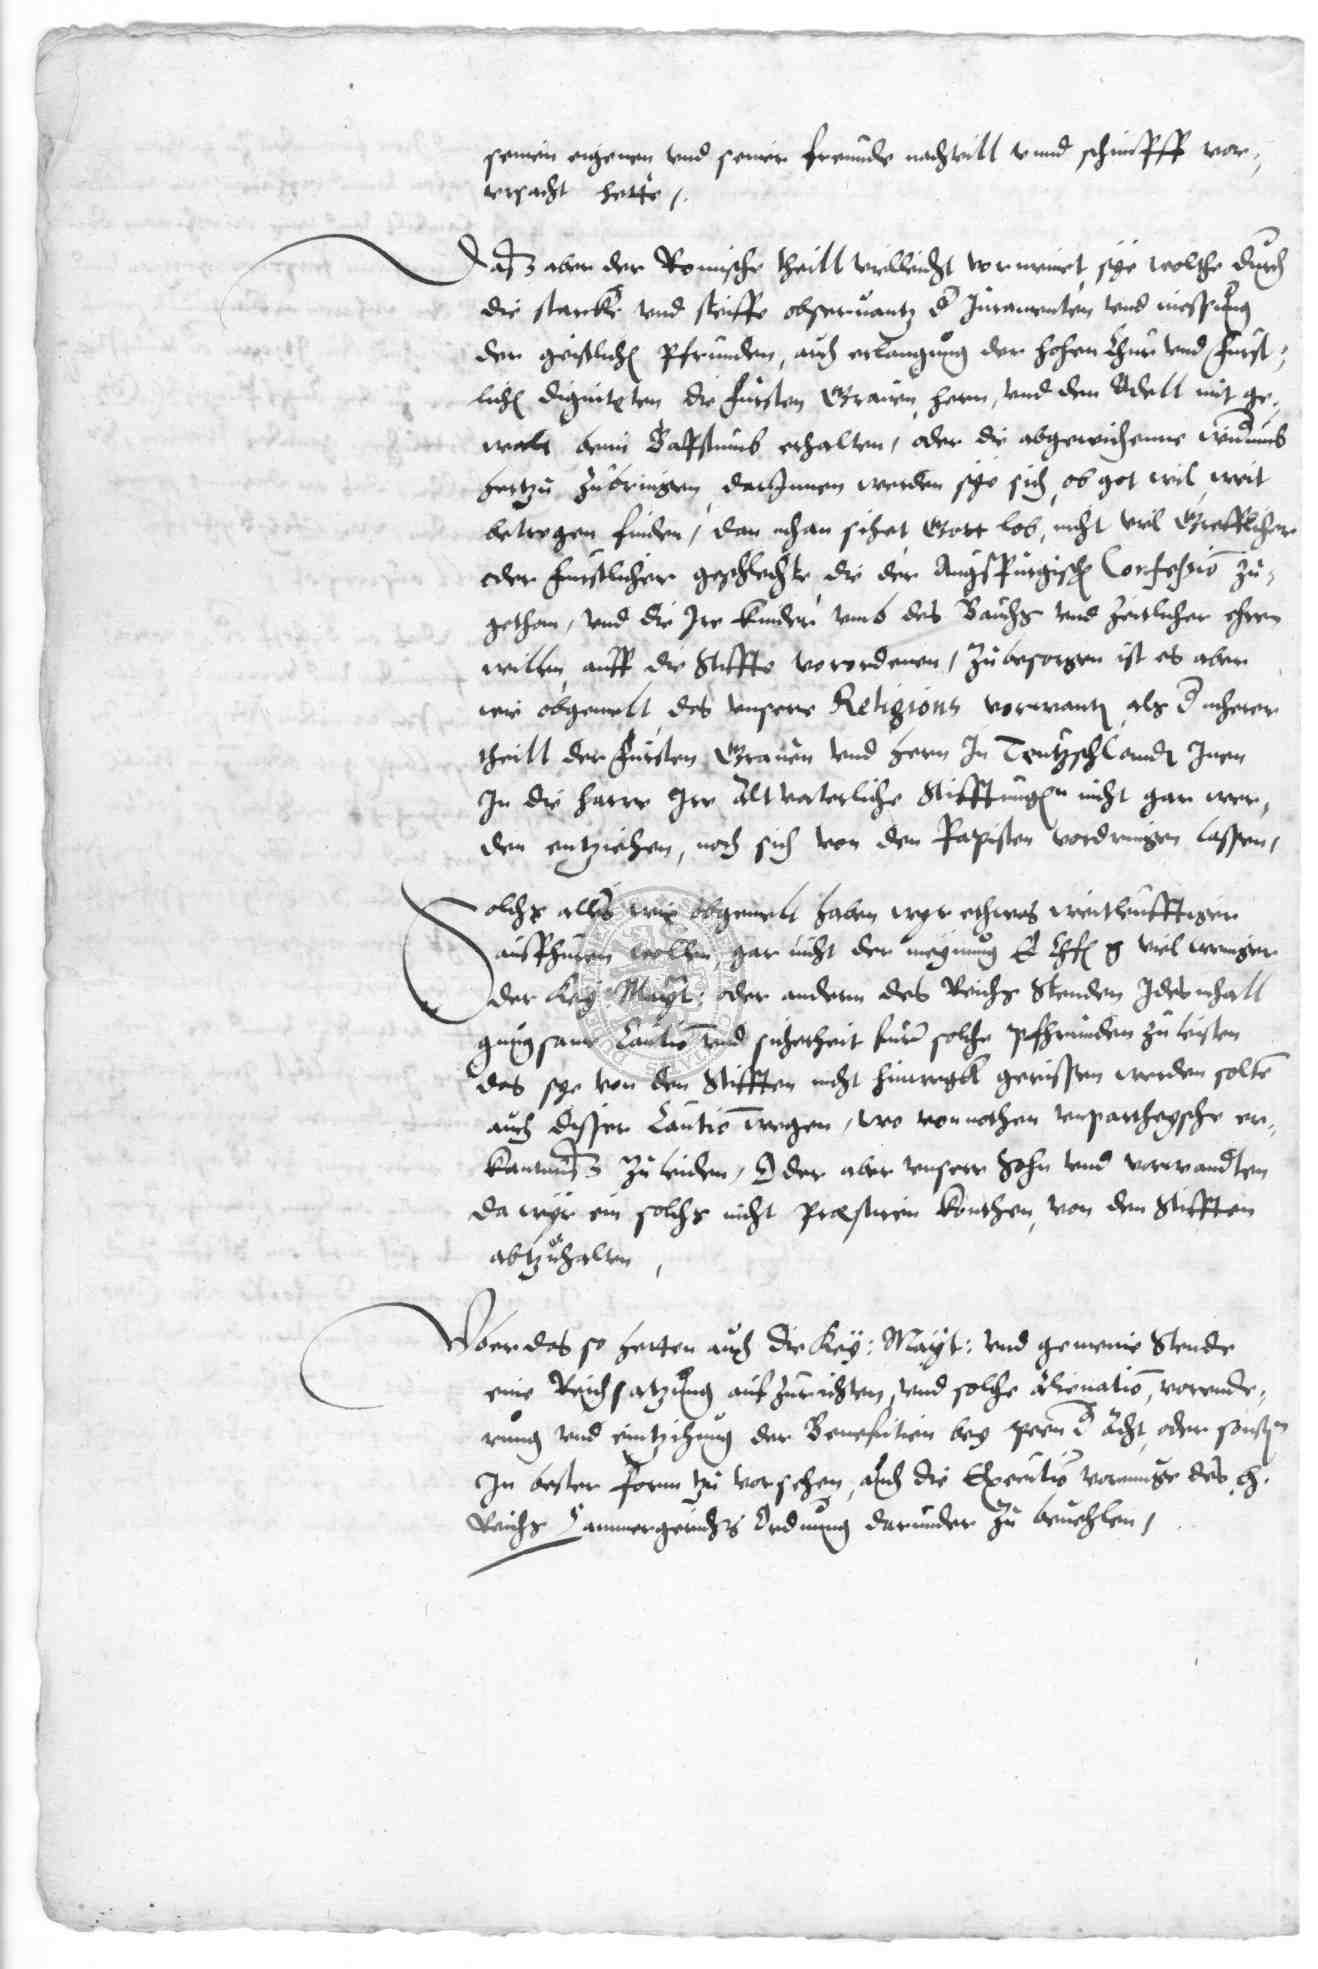 seinen eigenen vnd seiner freunde nachteill vnnd schimpff vor-
vrsacht hette /.
Daß aber der Romische theill vielleicht vermeinet, sye wolthe durch
die starcke vnd steiffe obseruantz d Juramenten vnd niessung
der geistlich pfrunden, auch erlangung der hohen Chur vnd furst-
lich digniteten die fursten Grauen hern, vnd den Adell mit ge-
walt beim Bapstumb erhalten, oder die abgewichenne widdumb
hertzu zubringen, darJnnen werden sye sich, ob got wil, weit
betrogen finden / dan man sihet Gott lob, nicht viel Grefflicher
oder furstlicher geschlechte, die der Augspurgisch Confessio zu-
gethan, vnd die Jre kinder vmb des Bauchs vnd zeitlicher ehren
willen, auff die Stiffte verordenen / zubesorgen ist es aber
wie obgemelt, das vnsere Religions vorwante, als d meherer
theill der fursten Grauen vnd hern Jn Teutzschland Jnen
Jn die harre Jre Altvaterliche Stifftungen nicht gar wer-
den entziehen, noch sich von den Papisten verdringen lassen /
Solchs alles wie obgemelt haben wyr ethwas weitleufftiger
ausfhuren wollen, gar nicht der meynung E Chf g viel weniger
der Key: Mayt: oder andern des Reichs Stenden Jdesmhall
gnugsame Cautio vnd sicherheit fur solche pfhrunden zu leisten
das sye von den Stifften nicht hinwegk gerissen werden solte
auch disser Cautio wegen, wo von nothen vnpartheysche er-
kantnuß zu leiden, Oder aber vnsere Sohn vnd vorwandten
da wyr ein solchs nicht præstiren konthen, von den Stifften
abtzuhalten,
Vber das so hetten auch die Key: Mayt: vnd gemeine Stende
eine Reichsatzung aufzurichten, vnd solche alienatio, vorende-
rung vnd eintzihung der Beneficien bey peen d Acht, oder sonsten
Jn bester form tzu vorsehen, auch die Executio vormuge des h.
Reichs Cammergerichts Ordnung darunder zu beuehlen /